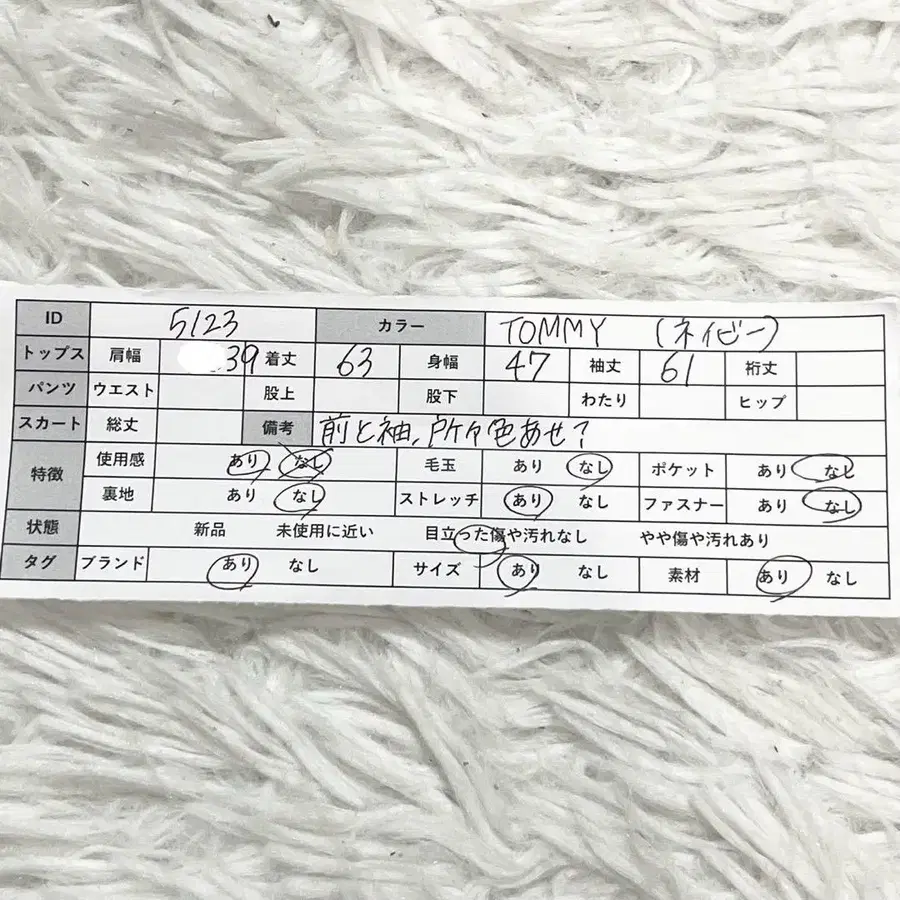 ID 5123 カラー TOMMY (ネイビー)
トップス 肩幅 39 着丈 63 身幅 47 袖丈 61 裄丈
パンツ ウエスト 股上 股下 わたり ヒップ
スカート 総丈 備考 前と袖、所々色あせ?
特徴 使用感 あり なし 毛玉 あり なし ポケット あり なし
裏地 あり なし ストレッチ あり なし ファスナー あり なし
状態 新品 未使用に近い 目立った傷や汚れなし やや傷や汚れあり
タグ ブランド あり なし サイズ あり なし 素材 あり なし